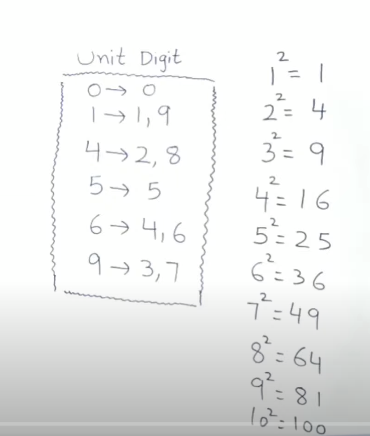 Unit Digit
0→ 0
1→1,9
4→2,8
5→ 5
6→ 4,6
9→ 3,7
1²= 1
2²= 4
3²= 9
4²= 16
5²= 25
6²= 36
7²= 49
8²= 64
9²= 81
10²= 100